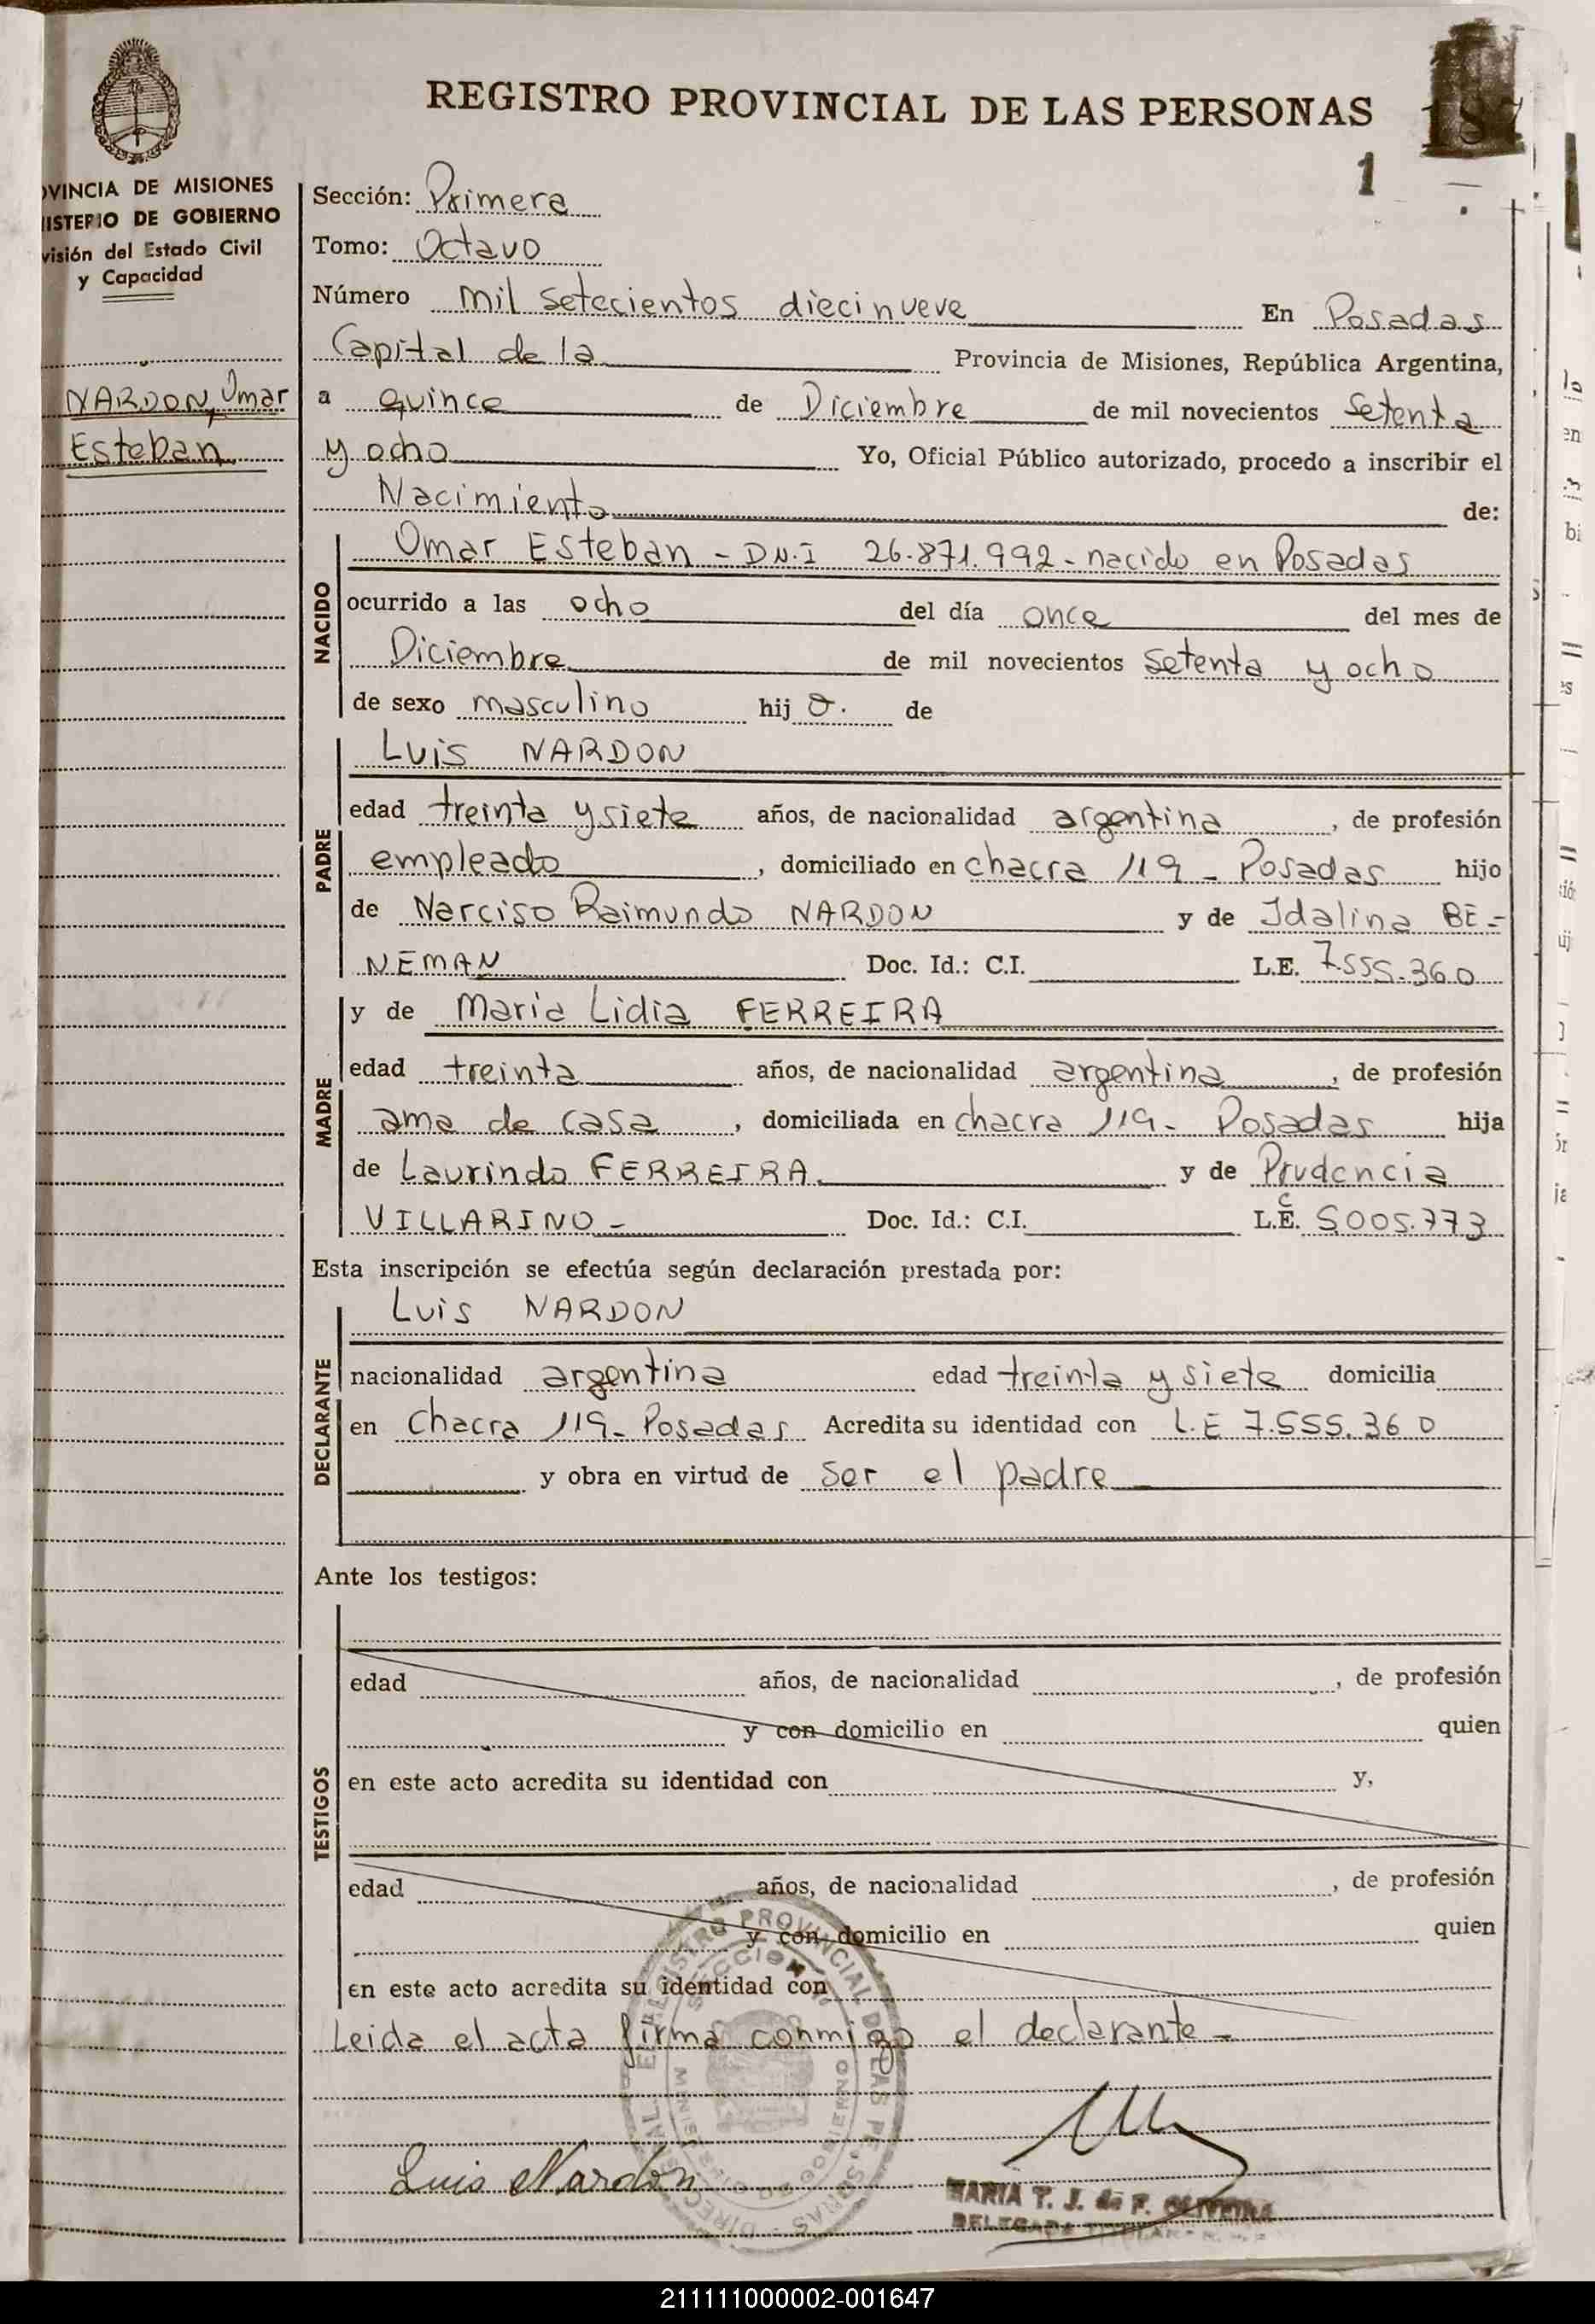 REGISTRO PROVINCIAL DE LAS PERSONAS
187
1
VINCIA DE MISIONES
ISTERIO DE GOBIERNO
visión del Estado Civil
y Capacidad
NARDON, Omar
Esteban
Sección: Primera
Tomo: Octavo
Número mil setecientos diecinueve En Posadas
Capital de la Provincia de Misiones, República Argentina,
a quince de Diciembre de mil novecientos setenta
y ocho Yo, Oficial Público autorizado, procedo a inscribir el
Nacimiento de:
NACIDO
Omar Esteban - D.N.I 26.871.992 - nacido en Posadas
ocurrido a las ocho del día once del mes de
Diciembre de mil novecientos setenta y ocho
de sexo masculino hijo. de
PADRE
Luis NARDON
edad treinta y siete años, de nacionalidad argentina, de profesión
empleado, domiciliado en chacra 119 - Posadas hijo
de Narciso Raimundo NARDON y de Idalina BE-
NEMAN Doc. Id.: C.I. L.E. 7.555.360
MADRE
y de Maria Lidia FERREIRA
edad treinta años, de nacionalidad argentina, de profesión
ama de casa, domiciliada en chacra 119- Posadas hija
de Laurindo FERREIRA. y de Prudencia
VILLARINO - Doc. Id.: C.I. L.E. C 5.005.773
Esta inscripción se efectúa según declaración prestada por:
DECLARANTE
Luis NARDON
nacionalidad argentina edad treinta y siete domicilia
en Chacra 119- Posadas Acredita su identidad con L.E 7.555.360
y obra en virtud de ser el padre
Ante los testigos:
TESTIGOS
edad años, de nacionalidad , de profesión
y con domicilio en quien
en este acto acredita su identidad con y,
edad años, de nacionalidad , de profesión
y con domicilio en quien
en este acto acredita su identidad con
Leida el acta firma conmigo el declarante -
REGISTRO PROVINCIAL DE LAS PERSONAS
SECCION
Luis Nardon
MARIA T. J. de F. OLIVEIRA
DELEGADA TITULAR
211111000002-001647